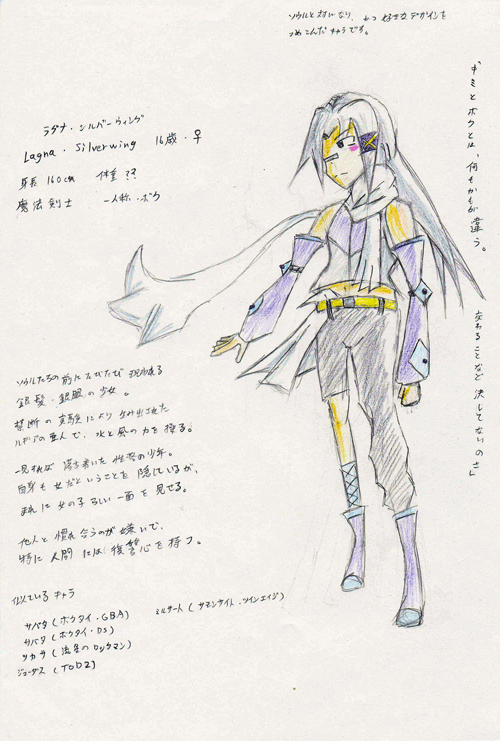 ソウルと対になり、かつ好きなデザインを
つめこんだキャラです。
ラグナ・シルバーウィング
Lagna・Silverwing 16歳・♀
身長 160cm 体重 ??
魔法剣士 一人称・ボク
「キミとボクとは、何もかもが違う。
交わることなど決してないのさ」
ソウルたちの前にたびたび現われる
銀髪・銀眼の少女。
禁断の実験により生み出された
ルギアの亜人で、水と風の力を操る。
一見すれば落ち着いた性格の少年。
自身も女だということを隠しているが、
まれに女の子らしい一面を見せる。
他人と慣れ合うのが嫌いで、
特に人間には復讐心を持つ。
似ているキャラ
サバタ(ボクタイ・GBA) ミルサート(サモンナイト・ツインエイジ)
サバタ(ボクタイ・DS)
ツカサ(流星のロックマン)
ジューダス(TOD2)